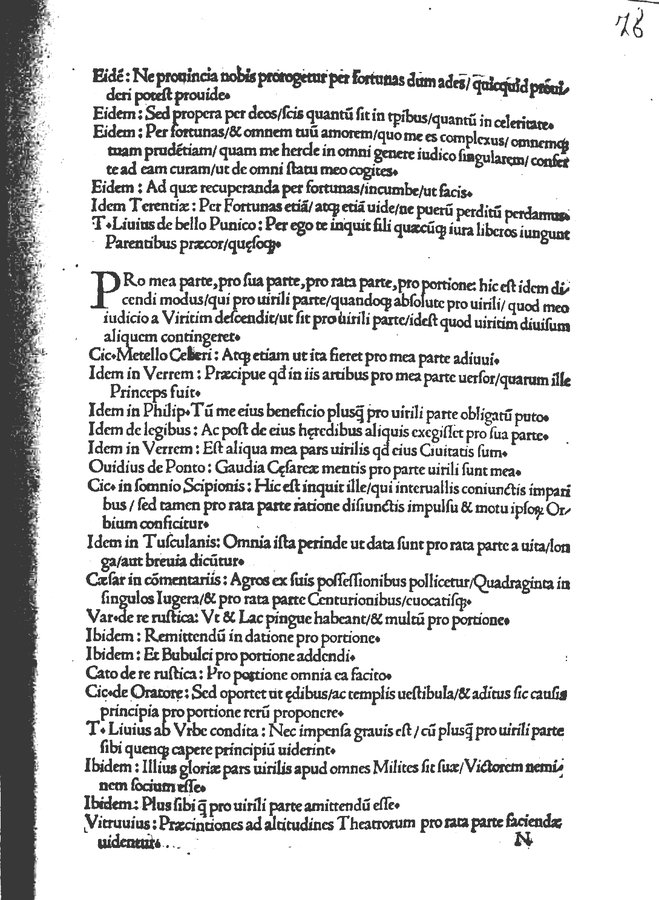 78
Eidẽ: Ne prouincia nobis prorogetur per fortunas dum ades/ q̃uicquid prõui/
deri potest prouide.
Eidem: Sed propera per deos/scis quantũ sit in tpibus/quantũ in celeritate.
Eidem: Per fortunas/& omnem tuũ amorem/quo me es complexus/ omnemqꝫ
tuam prudẽtiam/ quam me hercle in omni genere iudico singularem/ confer
te ad eam curam/ut de omni statu meo cogites.
Eidem: Ad quæ recuperanda per fortunas/incumbe/ut facis.
Idem Terentiæ: Per Fortunas etiã/ atqꝫ etiã uide/ne puerũ perditũ perdamus.
T. Liuius de bello Punico: Per ego te inquit fili quæcũqꝫ iura liberos iungunt
Parentibus præcor/quęsoqꝫ.
PRo mea parte,pro sua parte,pro rata parte,pro portione: hic est idem di/
cendi modus/qui pro uirili parte/quandoqꝫ absolute pro uirili/ quod meo
iudicio a Viritim descendit/ut sit pro uirili parte/idest quod uiritim diuisum
aliquem contingeret.
Cic.Metello Celeri: Atqꝫ etiam ut ita fieret pro mea parte adiuui.
Idem in Verrem: Præcipue qđ in iis artibus pro mea parte uersor/quarum ille
Princeps fuit.
Idem in Philip.Tũ me eius beneficio plusqꝫ pro uirili parte obligatũ puto.
Idem de legibus: Ac post de eius hęredibus aliquis exegisset pro sua parte.
Idem in Verrem: Est aliqua mea pars uirilis qđ eius Ciuitatis sum.
Ouidius de Ponto: Gaudia Cęsareæ mentis pro parte uirili sunt mea.
Cic. in somnio Scipionis: Hic est inquit ille/qui interuallis coniunctis impari
bus/ sed tamen pro rata parte ratione distunctis impulsu & motu ipsoꝝ Or/
bium conficitur.
Idem in Tusculanis: Omnia ista perinde ut data sunt pro rata parte a uita/lon
ga/aut breuia dicũtur.
Cæsar in cõmentariis: Agros ex suis possessionibus pollicetur/Quadraginta in
singulos Iugera/& pro rata parte Centurionibus/euocatisqꝫ.
Var.de re rustica: Vt & Lac pingue habeant/& multũ pro portione.
Ibidem: Remittendũ in datione pro portione.
Ibidem: Et Bubulci pro portione addendi.
Cato de re rustica: Pro portione omnia ea facito.
Cic.de Oratore: Sed oportet ut ędibus/ac templis uestibula/& aditus sic causis
principia pro portione rerũ proponere.
T. Liuius ab Vrbe condita: Nec impensa grauis est/ cũ plusqꝫ pro uirili parte
sibi quenqꝫ capere principiũ uiderint.
Ibidem: Illius gloriæ pars uirilis apud omnes Milites sit suæ/Victorem nemi/
nem socium esse.
Ibidem: Plus sibi q̃ pro uirili parte amittendũ esse.
Vitruuius: Præcintiones ad altitudines Theatrorum pro rata parte faciendæ
uidentur.
N